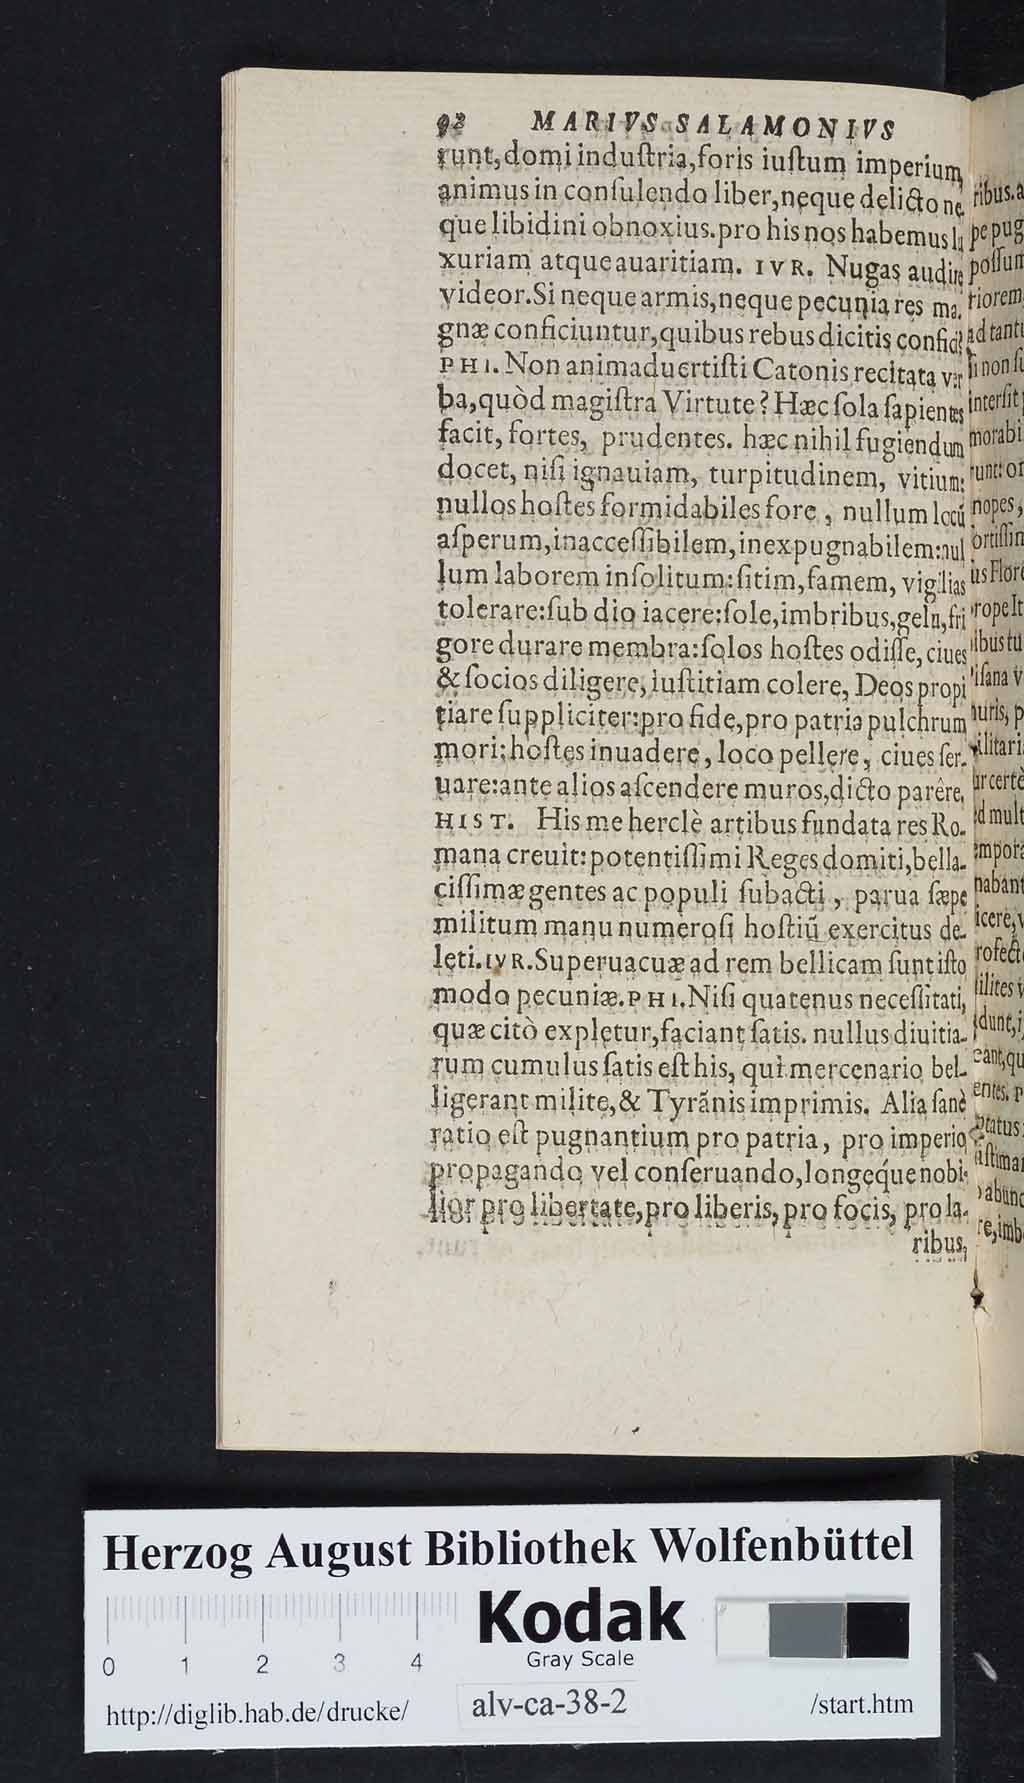 92 MARIVS SALAMONIVS
runt, domi induſtria, foris iuſtum imperium,
animus in conſulendo liber, neque delicto ne-
que libidini obnoxius. pro his nos habemus lu
xuriam atque auaritiam. IVR. Nugas audire
videor. Si neque armis, neque pecunia res ma-
gnæ conficiuntur, quibus rebus dicitis confici?
PHI. Non animaduertiſti Catonis recitata ver
ba, quòd magiſtra Virtute? Hæc ſola ſapientes
facit, fortes, prudentes. hæc nihil fugiendum
docet, niſi ignauiam, turpitudinem, vitium:
nullos hoſtes formidabiles fore, nullum locũ
aſperum, inacceſſibilem, inexpugnabilem: nul
lum laborem inſolitum: ſitim, famem, vigilias
tolerare: ſub dio iacere: ſole, imbribus, gelu, fri
gore durare membra: ſolos hoſtes odiſſe, ciues
& ſocios diligere, iuſtitiam colere, Deos propi
tiare ſuppliciter: pro fide, pro patria pulchrum
mori: hoſtes inuadere, loco pellere, ciues ſer-
uare: ante alios aſcendere muros, dicto parêre.
HIST. His me herclè artibus fundata res Ro-
mana creuit: potentiſſimi Reges domiti, bella-
ciſſimæ gentes ac populi ſubacti, parua ſæpe
militum manu numeroſi hoſtiũ exercitus de-
leti. IVR. Superuacuæ ad rem bellicam ſunt iſto
modo pecuniæ. PHI. Niſi quatenus neceſſitati,
quæ citò expletur, faciant ſatis. nullus diuitia-
rum cumulus ſatis eſt his, qui mercenario bel-
ligerant milite, & Tyrãnis imprimis. Alia ſanè
ratio eſt pugnantium pro patria, pro imperio
propagando vel conſeruando, longeq́ue nobi-
lior pro libertate, pro liberis, pro focis, pro la-
ribus,
ribus. a
pe pug
poſſun
riorem
ad tanti
interſit
morabi
nopes,
Herzog August Bibliothek Wolfenbüttel
Kodak
Gray Scale
0 1 2 3 4
http://diglib.hab.de/drucke/ alv-ca-38-2 /start.htm